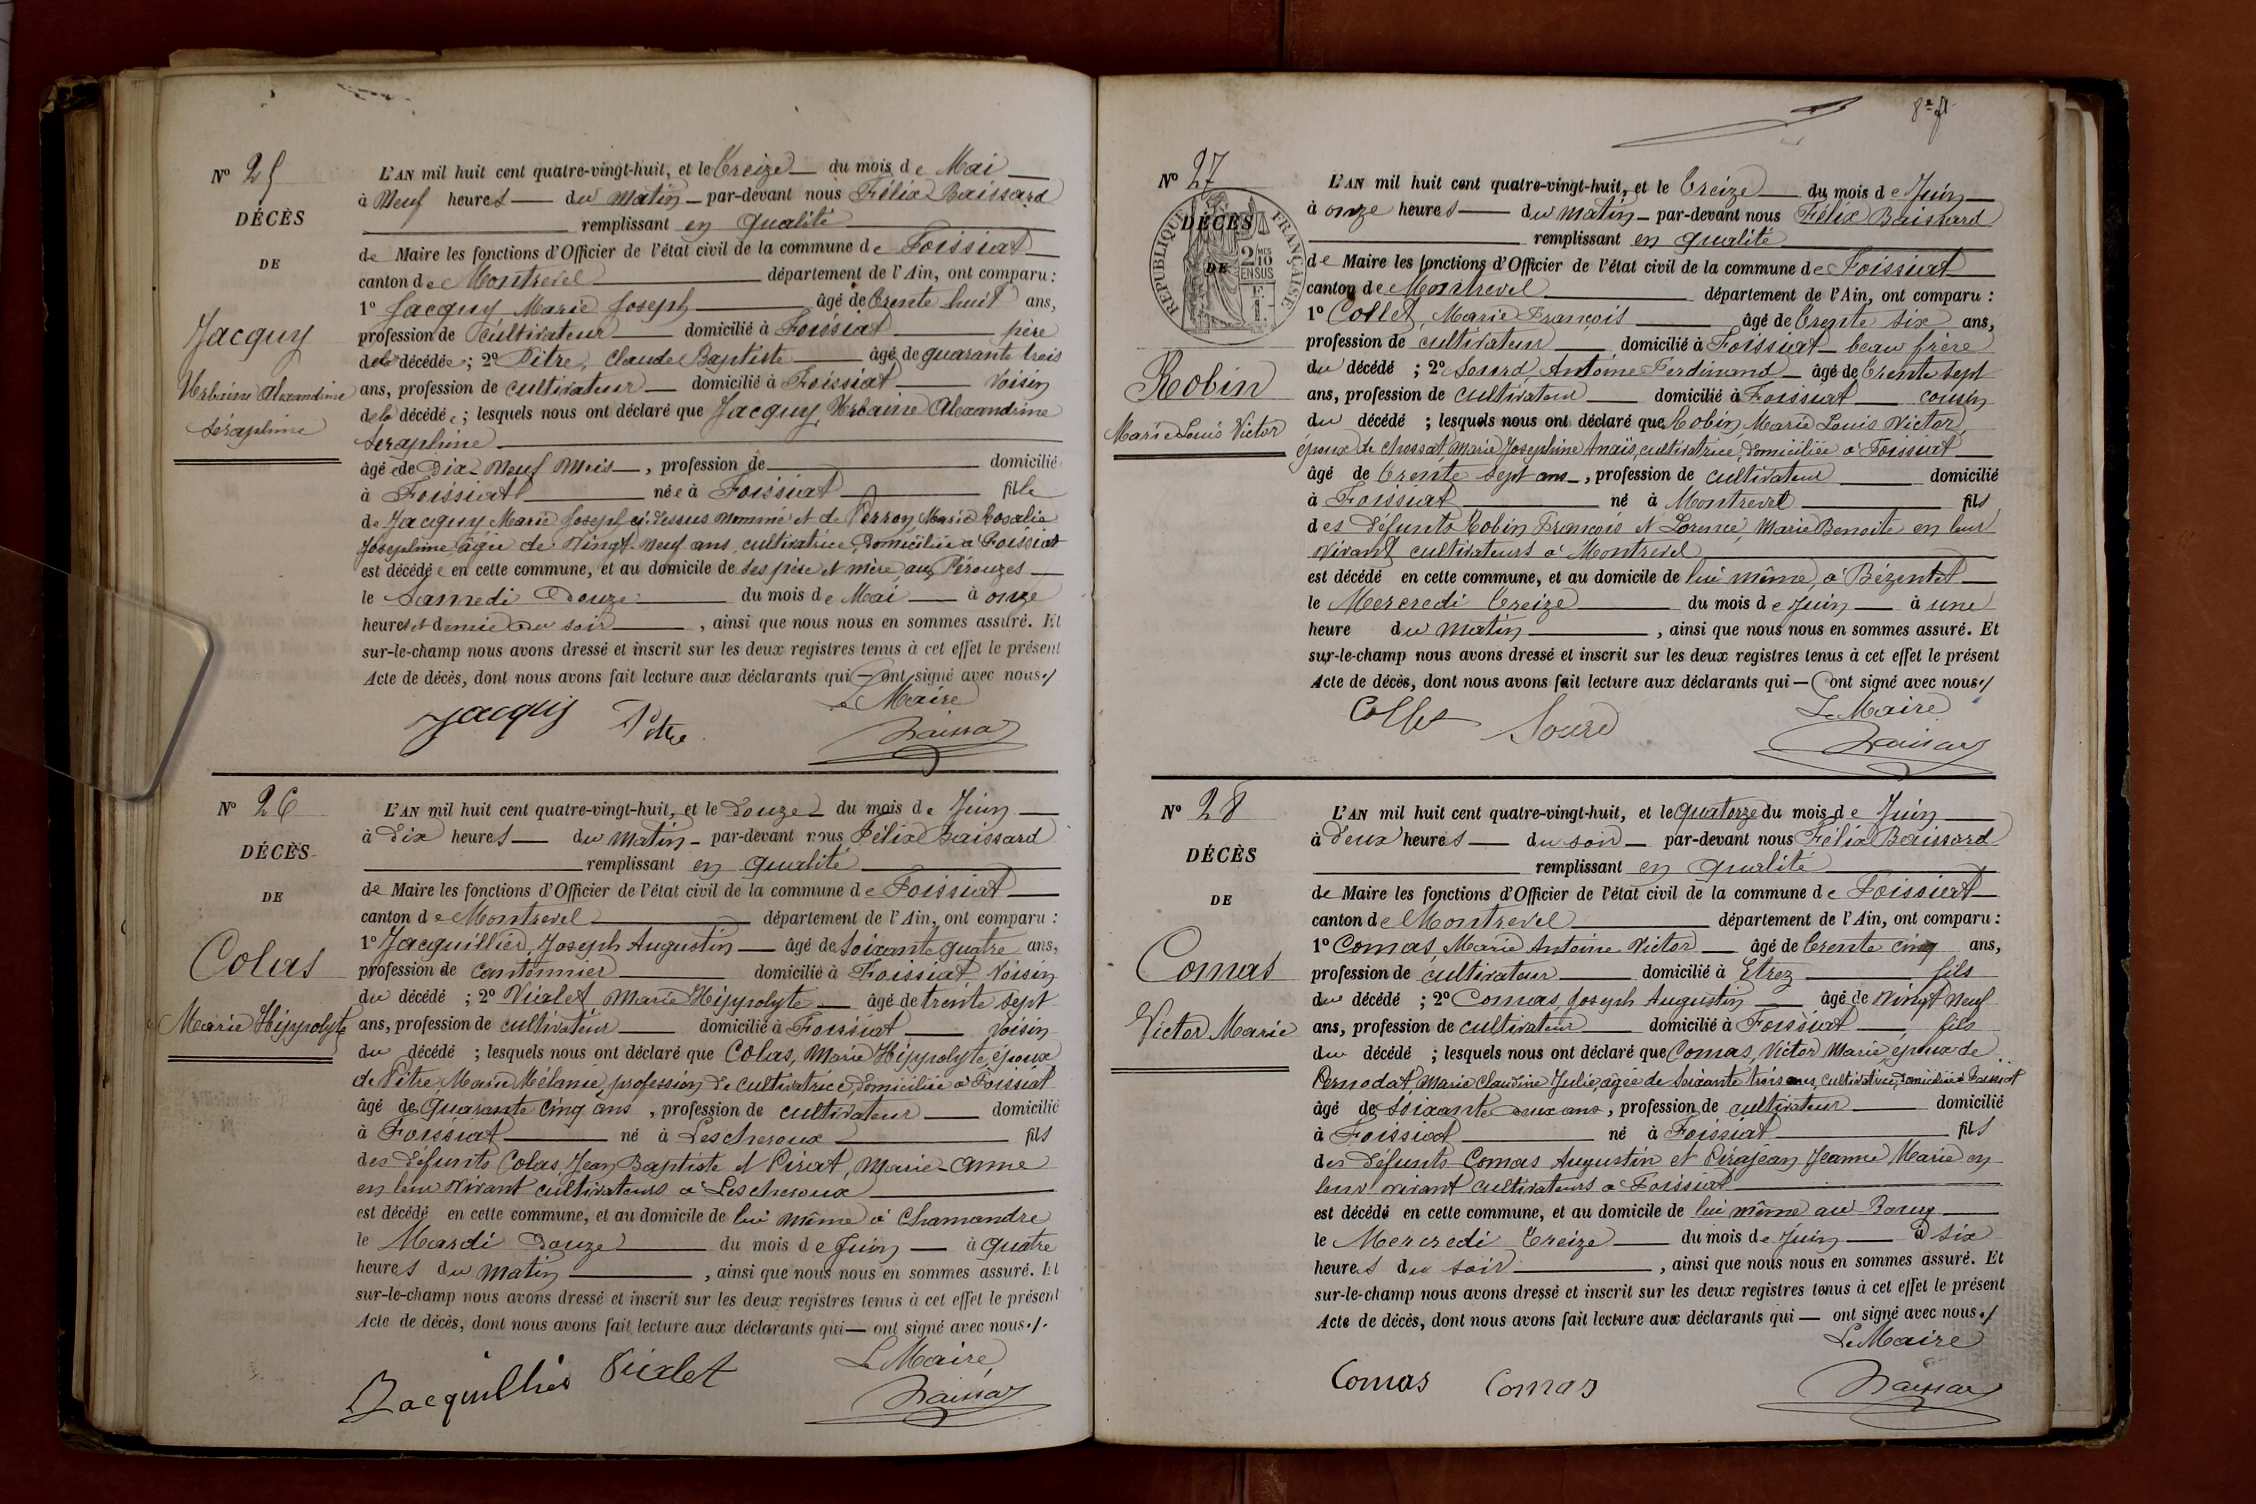 N° 25
DÉCÈS
DE
Jacquy
Urbaine Alexandrine
Séraphine
L'AN mil huit cent quatre-vingt-huit, et le treize du mois de Mai
à Neuf heures du matin par-devant nous Félix Baissard
remplissant en qualité
de Maire les fonctions d'Officier de l'état civil de la commune de Foissiat
canton de Montrevel département de l'Ain, ont comparu :
1° Jacquy Marie Joseph âgé de trente huit ans,
profession de cultivateur domicilié à Foissiat père
de la décédée ; 2° Pitre, Claude Baptiste âgé de quarante trois
ans, profession de cultivateur domicilié à Foissiat voisin
de la décédée ; lesquels nous ont déclaré que Jacquy Urbaine Alexandrine
Séraphine
âgée de Dix Neuf Mois, profession de domicilié
à Foissiat née à Foissiat fille
de Jacquy Marie Joseph ci-dessus nommé et de Perron Marie Rosalie
Josephine âgée de Vingt Neuf ans, cultivatrice, domiciliée à Foissiat
est décédée en cette commune, et au domicile de ses père et mère, aux Pérouzes
le Samedi Douze du mois de Mai à onze
heures et demie du soir, ainsi que nous nous en sommes assuré. Et
sur-le-champ nous avons dressé et inscrit sur les deux registres tenus à cet effet le présent
Acte de décès, dont nous avons fait lecture aux déclarants qui — ont signé avec nous./
Le Maire
Jacquy Pitre
N° 26
DÉCÈS
DE
Colas
Marie Hippolyte
L'AN mil huit cent quatre-vingt-huit, et le douze du mois de Juin
à dix heures du matin par-devant nous Félix Baissard
remplissant en qualité
de Maire les fonctions d'Officier de l'état civil de la commune de Foissiat
canton de Montrevel département de l'Ain, ont comparu :
1° Jacquillier, Joseph Augustin âgé de soixante quatre ans,
profession de cantonnier domicilié à Foissiat voisin
du décédé ; 2° Vialet Marie Hippolyte âgé de trente sept
ans, profession de cultivateur domicilié à Foissiat voisin
du décédé ; lesquels nous ont déclaré que Colas, Marie Hippolyte, époux
de Pitre, Marie Mélanie, profession de cultivatrice, domiciliée à Foissiat
âgé de Quarante Cinq ans, profession de cultivateur domicilié
à Foissiat né à Lescheroux fils
des défunts Colas, Jean Baptiste et Pirat, Marie-Anne
en leur vivant cultivateurs à Lescheroux
est décédé en cette commune, et au domicile de lui même à Chamandre
le Mardi Douze du mois de Juin à quatre
heures du matin, ainsi que nous nous en sommes assuré. Et
sur-le-champ nous avons dressé et inscrit sur les deux registres tenus à cet effet le présent
Acte de décès, dont nous avons fait lecture aux déclarants qui — ont signé avec nous./.
Le Maire,
Jacquillier Vialet
N° 27
RÉPUBLIQUE FRANÇAISE
2/10 EN SUS
DÉCÈS
DE
Robin
Marie Louis Victor
L'AN mil huit cent quatre-vingt-huit, et le treize du mois de Juin
à onze heures du matin par-devant nous Félix Baissard
remplissant en qualité
de Maire les fonctions d'Officier de l'état civil de la commune de Foissiat
canton de Montrevel département de l'Ain, ont comparu :
1° Collet, Marie François âgé de trente six ans,
profession de cultivateur domicilié à Foissiat beau frère
du décédé ; 2° Antoine Ferdinand âgé de trente sept
ans, profession de cultivateur domicilié à Foissiat cousin
du décédé ; lesquels nous ont déclaré que Robin Marie Louis Victor,
époux de Chossat, Marie Josephine Anaïs, cultivatrice, domiciliée à Foissiat
âgé de trente sept ans, profession de cultivateur domicilié
à Foissiat né à Montrevel fils
des défunts Robin François et Marie Benoite en leur
vivant cultivateurs à Montrevel
est décédé en cette commune, et au domicile de lui même, à Bézentet
le Mercredi treize du mois de Juin à une
heure du matin, ainsi que nous nous en sommes assuré. Et
sur-le-champ nous avons dressé et inscrit sur les deux registres tenus à cet effet le présent
Acte de décès, dont nous avons fait lecture aux déclarants qui — ont signé avec nous./
Le Maire
Collet
N° 28
DÉCÈS
DE
Comas
Victor Marie
L'AN mil huit cent quatre-vingt-huit, et le quatorze du mois de Juin
à deux heures du soir par-devant nous Félix Baissard
remplissant en qualité
de Maire les fonctions d'Officier de l'état civil de la commune de Foissiat
canton de Montrevel département de l'Ain, ont comparu :
1° Comas, Marie Antoine Victor âgé de trente cinq ans,
profession de cultivateur domicilié à Etrez fils
du décédé ; 2° Comas Joseph Augustin âgé de vingt neuf
ans, profession de cultivateur domicilié à Foissiat fils
du décédé ; lesquels nous ont déclaré que Comas, Victor Marie, époux de
Pernodat, Marie Claudine Julie, âgée de soixante trois ans, cultivatrice, domiciliée à Foissiat
âgé de soixante deux ans, profession de cultivateur domicilié
à Foissiat né à Foissiat fils
des défunts Comas Augustin et Pirajean Jeanne Marie en
leur vivant cultivateurs à Foissiat
est décédé en cette commune, et au domicile de lui même au Bourg
le Mercredi treize du mois de Juin à six
heures du soir, ainsi que nous nous en sommes assuré. Et
sur-le-champ nous avons dressé et inscrit sur les deux registres tenus à cet effet le présent
Acte de décès, dont nous avons fait lecture aux déclarants qui — ont signé avec nous./
Le Maire
Comas Comas